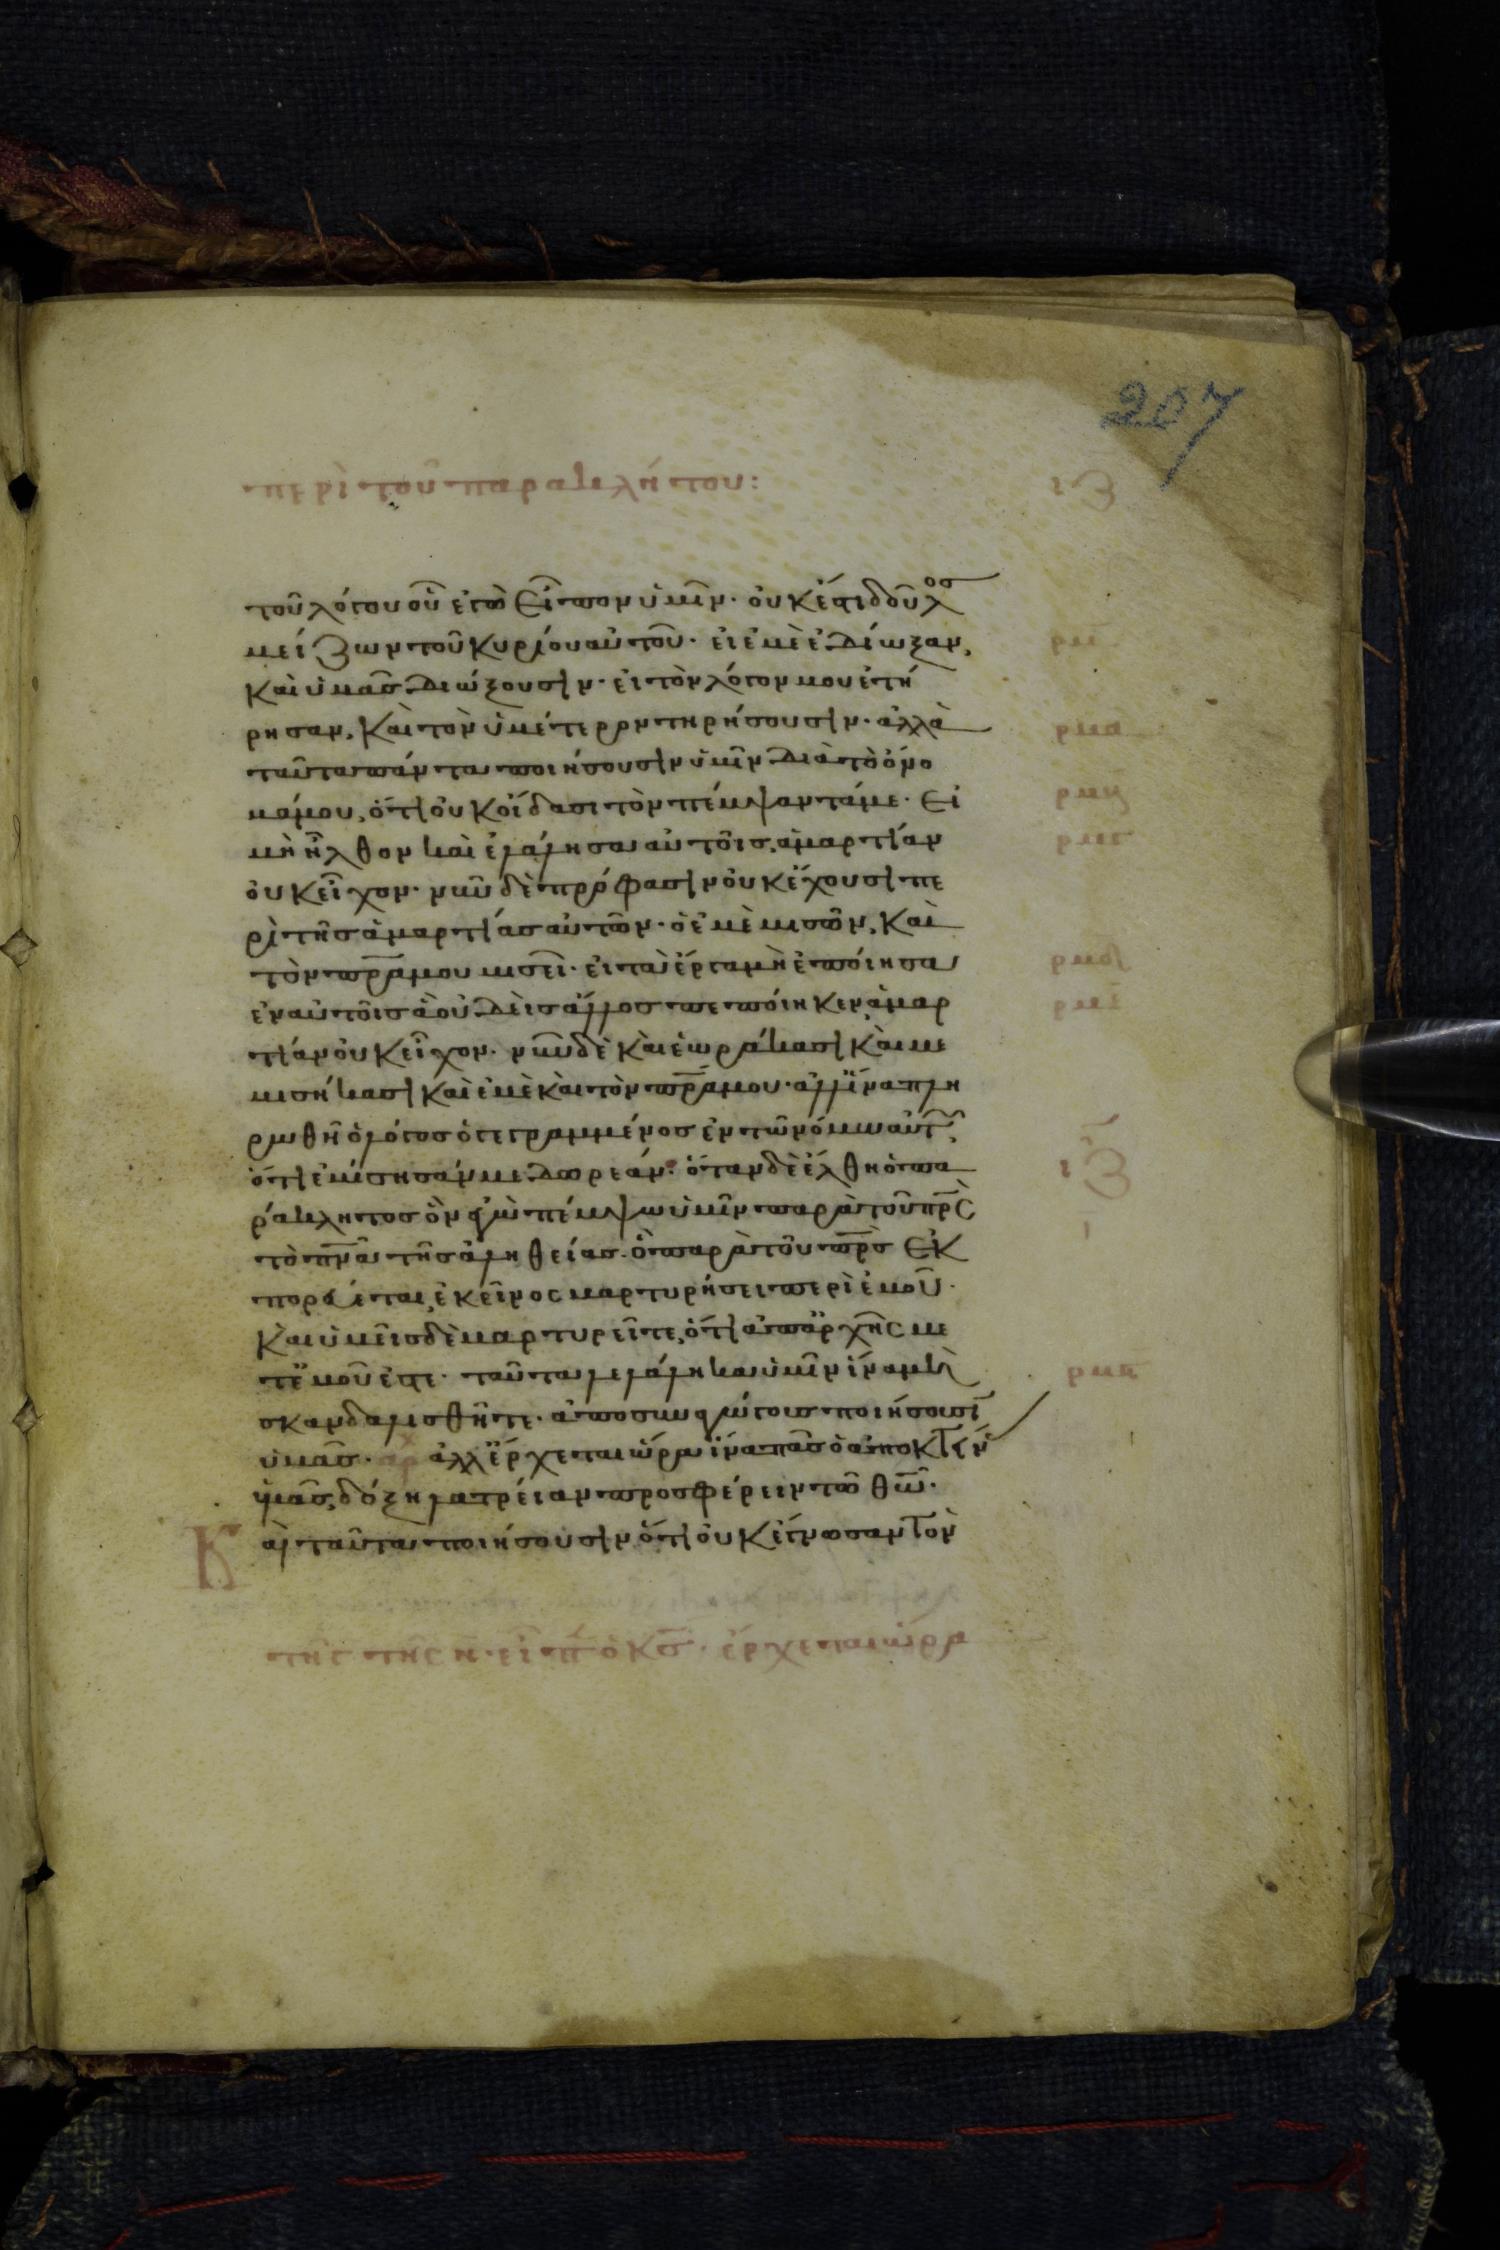 207
περὶ τοῦ παρακλήτου: ιζ
τοῦ λόγου οὗ ἐγὼ εἶπον ὑμῖν· οὐκ ἔστι δοῦλος
μείζων τοῦ κυρίου αὐτοῦ· εἰ ἐμὲ ἐδίωξαν,
καὶ ὑμᾶς διώξουσιν· εἰ τὸν λόγον μου ἐτή
ρησαν, καὶ τὸν ὑμέτερον τηρήσουσιν· ἀλλὰ
ταῦτα πάντα ποιήσουσιν ὑμῖν διὰ τὸ ὄνο
μά μου, ὅτι οὐκ οἴδασι τὸν πέμψαντά με· εἰ
μὴ ἦλθον καὶ ἐλάλησα αὐτοῖς, ἁμαρτίαν
οὐκ εἶχον· νῦν δὲ πρόφασιν οὐκ ἔχουσι πε
ρὶ τῆς ἁμαρτίας αὐτῶν· ὁ ἐμὲ μισῶν, καὶ
τὸν πρ̅α μου μισεῖ· εἰ τὰ ἔργα μὴ ἐποίησα
ἐν αὐτοῖς ἃ οὐδεὶς ἄλλος πεποίηκεν, ἁμαρ
τίαν οὐκ εἶχον· νῦν δὲ καὶ ἑωράκασι καὶ με
μισήκασι καὶ ἐμὲ καὶ τὸν πρ̅α μου· ἀλλ' ἵνα πλη
ρωθῆ ὁ λόγος ὁ γεγραμμένος ἐν τῶ νόμω αὐτῶν
ὅτι ἐμίσησάν με δωρεάν· ὅταν δὲ ἔλθη ὁ πα
ράκλητος ὃν ἐγὼ πέμψω ὑμῖν παρὰ τοῦ πρ̅ς
τὸ πν̅α τῆς ἀληθείας· ὃ παρὰ τοῦ πρ̅ς ἐκ
πορεύεται, ἐκεῖνος μαρτυρήσει περὶ ἐμοῦ·
καὶ ὑμεῖς δὲ μαρτυρεῖτε, ὅτι ἀπ' ἀρχῆς με
τ' ἐμοῦ ἐστε· ταῦτα λελάληκα ὑμῖν ἵνα μὴ
σκανδαλισθῆτε· ἀποσυναγώγους ποιήσουσι
ὑμᾶς· ἀλλ' ἔρχεται ὥρα ἵνα πᾶς ὁ ἀποκτείν
ὑμᾶς, δόξη λατρείαν προσφέρειν τῶ θω̅·
Καὶ ταῦτα ποιήσουσιν ὅτι οὐκ ἔγνωσαν τὸν
τῆς τῆς ν· εἶπ ὁ κς̅· ἔρχεται ὥρα